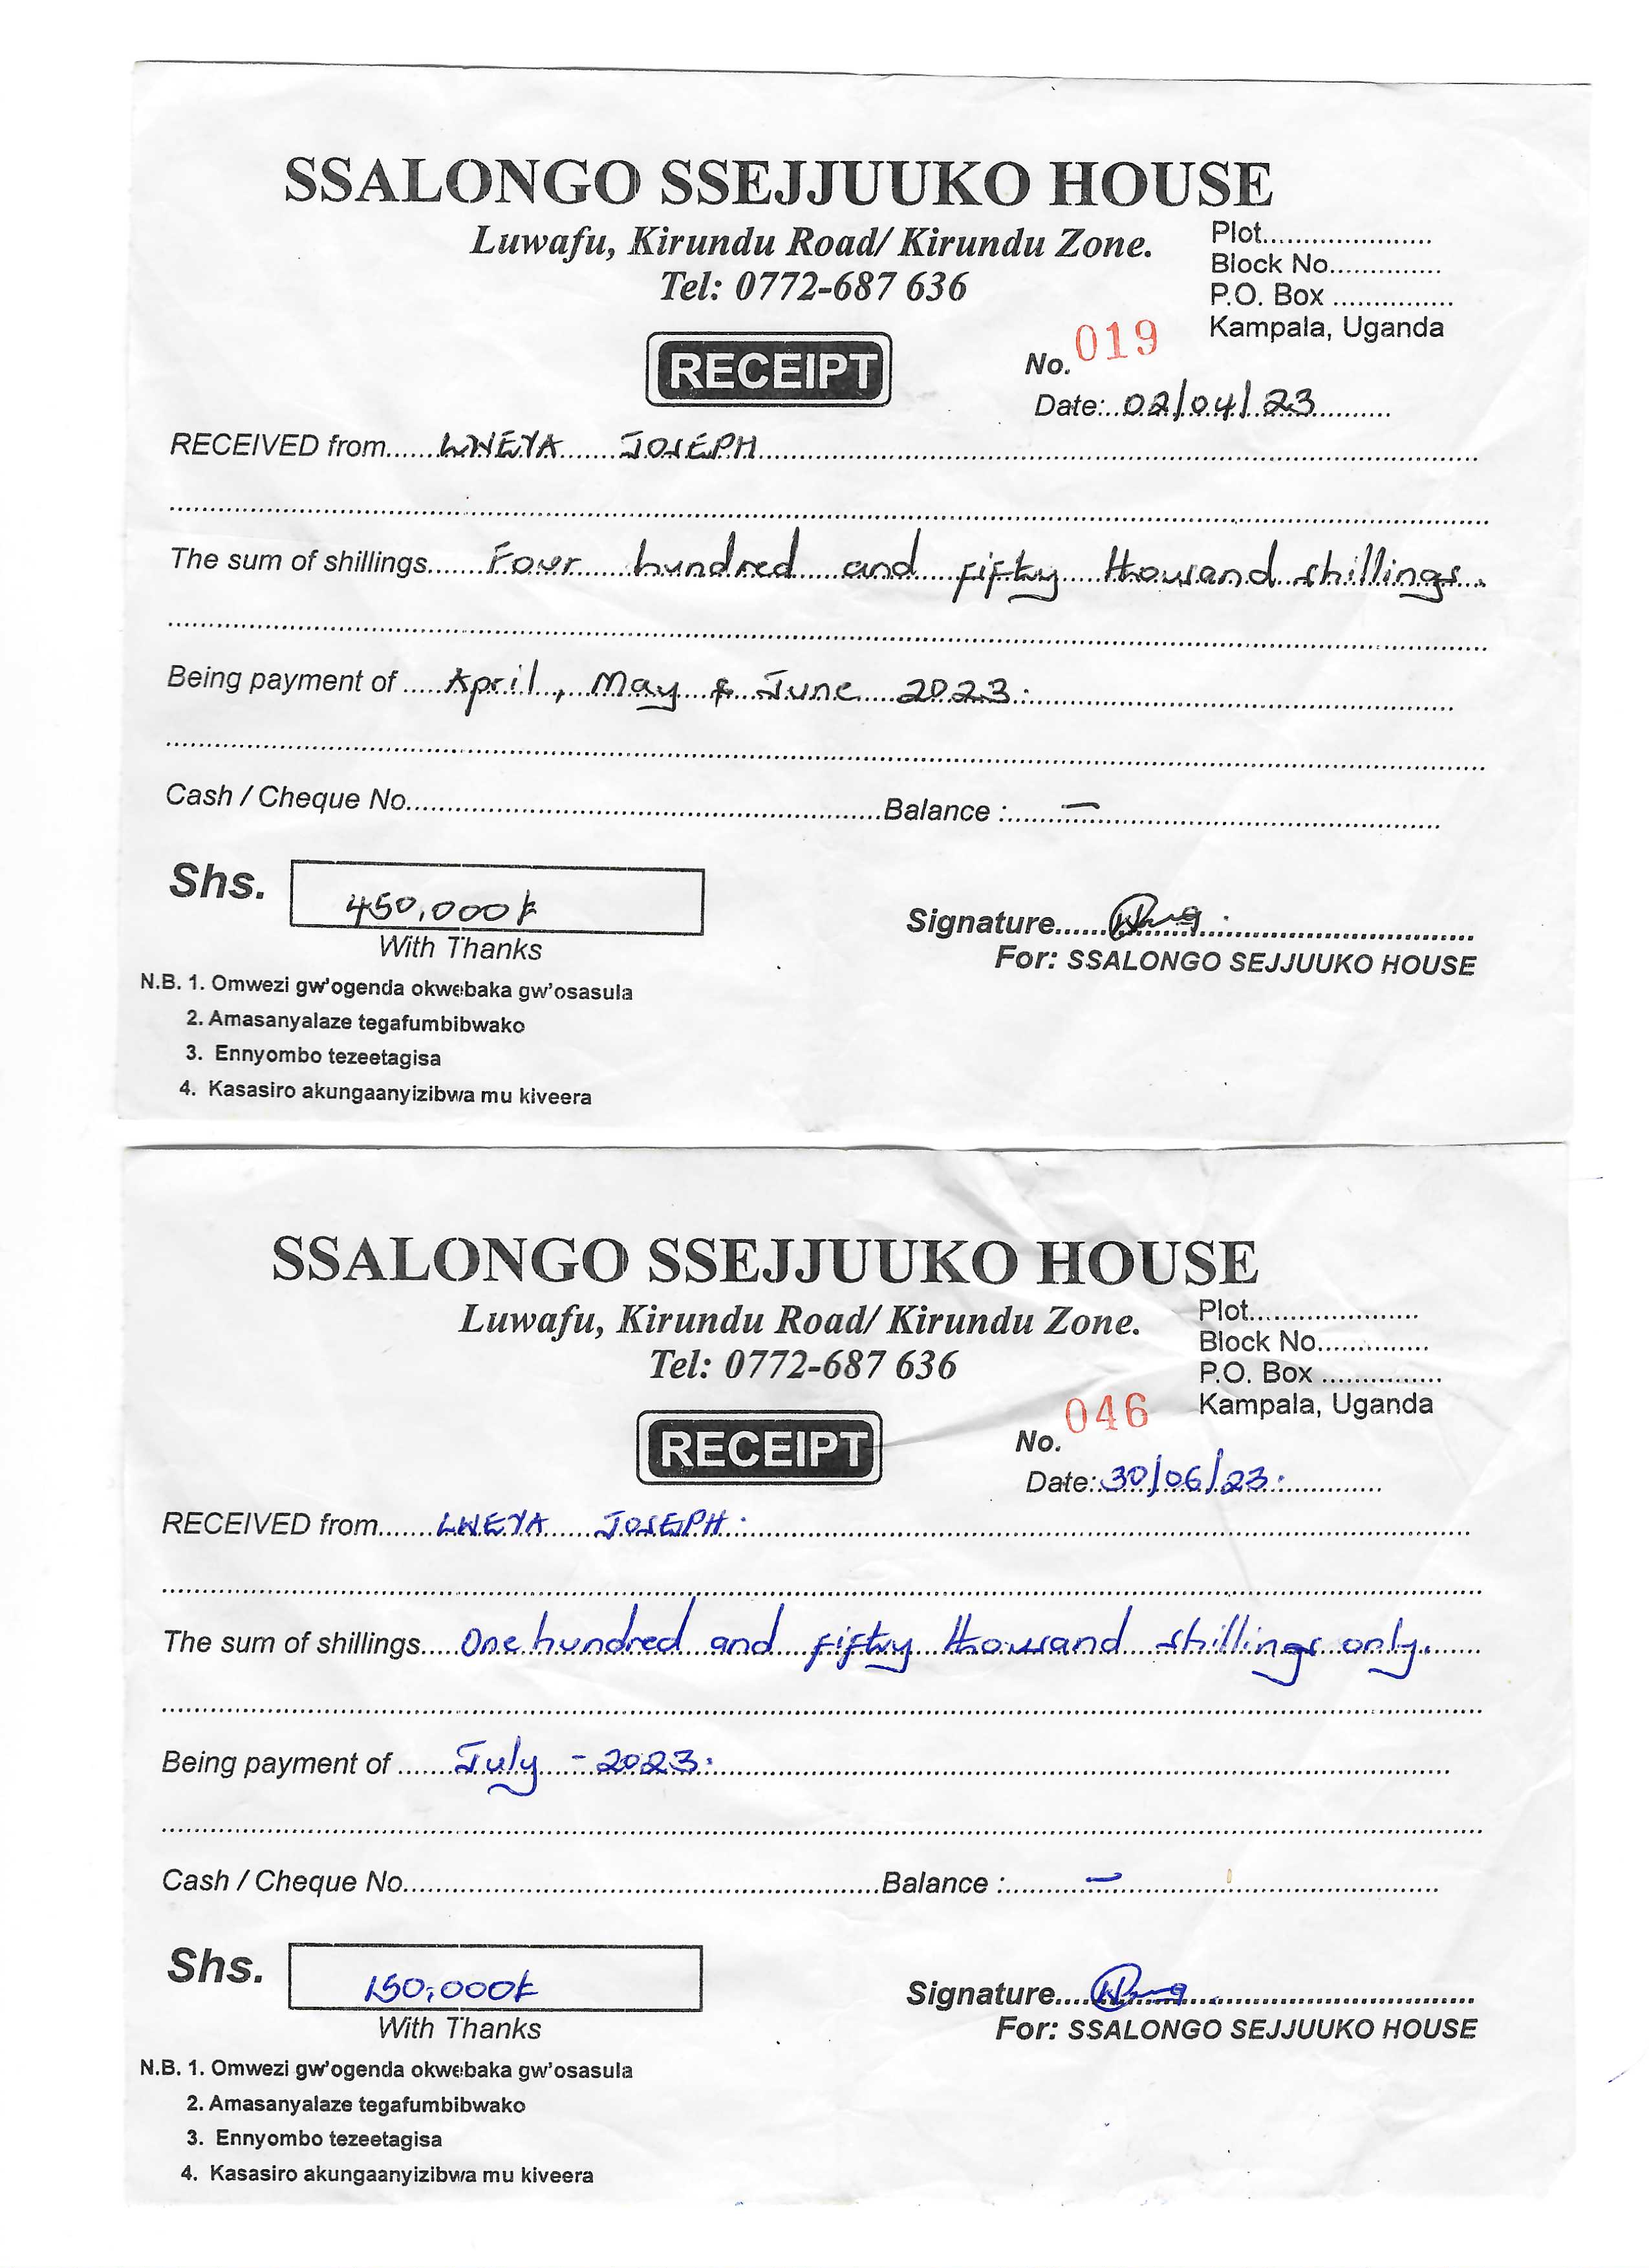 SSALONGO SSEJJUUKO HOUSE
Luwafu, Kirundu Road/ Kirundu Zone.
Tel: 0772-687 636
Plot......................
Block No..............
P.O. Box ...............
Kampala, Uganda
RECEIPT
No. 019
Date: 02/04/23
RECEIVED from LWEYA JOSEPH
The sum of shillings Four hundred and fifty thousand shillings.
Being payment of April, May & June 2023.
Cash / Cheque No. Balance : —
Shs. 450,000/=
With Thanks
Signature
For: SSALONGO SEJJUUKO HOUSE
N.B. 1. Omwezi gw'ogenda okwebaka gw'osasula
2. Amasanyalaze tegafumbibwako
3. Ennyombo tezeetagisa
4. Kasasiro akungaanyizibwa mu kiveera
SSALONGO SSEJJUUKO HOUSE
Luwafu, Kirundu Road/ Kirundu Zone.
Tel: 0772-687 636
Plot......................
Block No..............
P.O. Box ...............
Kampala, Uganda
RECEIPT
No. 046
Date: 30/06/23.
RECEIVED from LWEYA JOSEPH.
The sum of shillings One hundred and fifty thousand shillings only.
Being payment of July - 2023.
Cash / Cheque No. Balance : —
Shs. 150,000/=
With Thanks
Signature
For: SSALONGO SEJJUUKO HOUSE
N.B. 1. Omwezi gw'ogenda okwebaka gw'osasula
2. Amasanyalaze tegafumbibwako
3. Ennyombo tezeetagisa
4. Kasasiro akungaanyizibwa mu kiveera